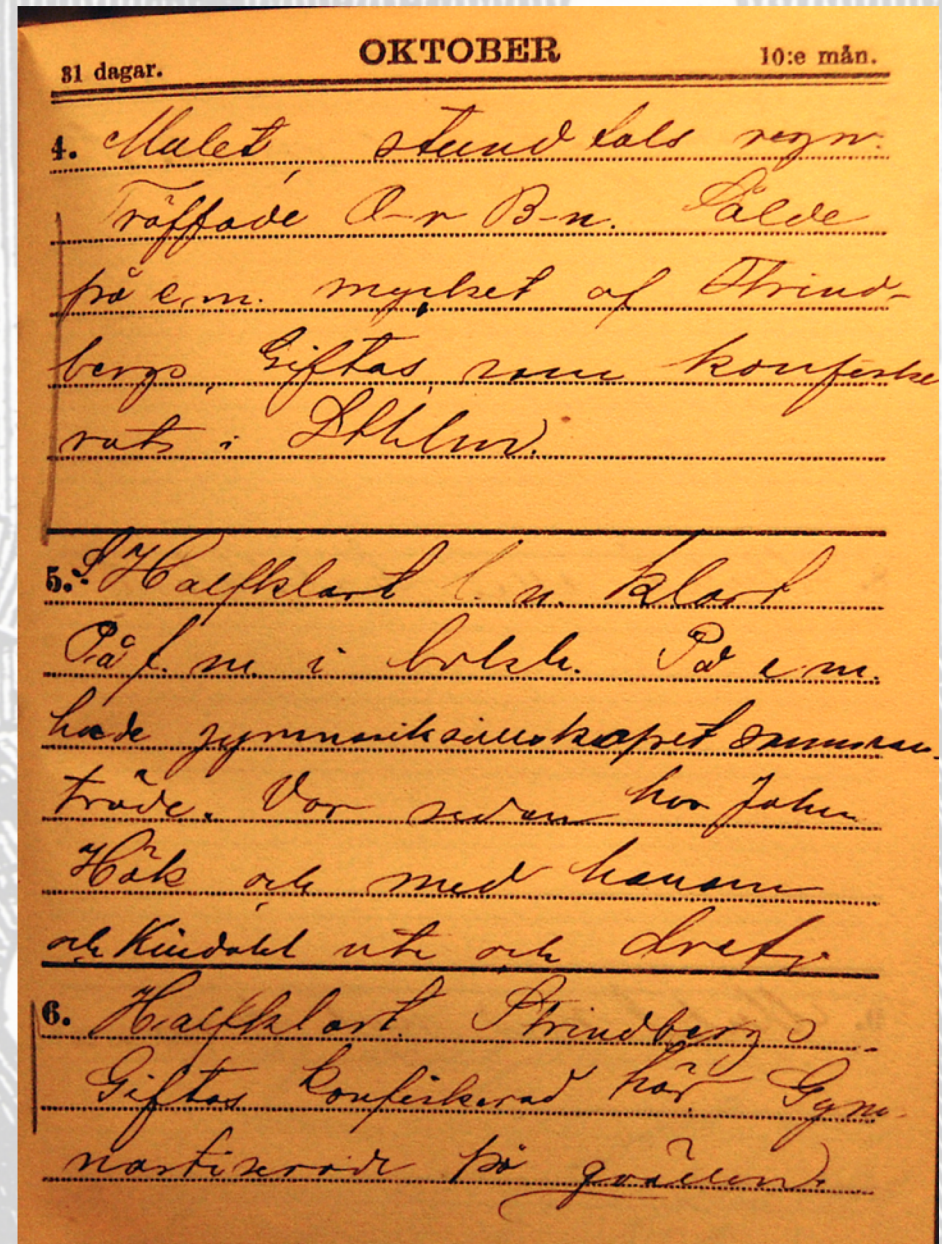 31 dagar. OKTOBER 10:e mån.
4. Mulet, stundtals regn.
Träffade O-r B-n. Sålde
på e.m. mycket af Strind-
bergs "Giftas", som konfiske
rats i Sthlm.
5. S Halfklart l. n. klart
På f.m. i bokh. På e m.
hade gymnastiksällskapet samman-
träde. Var sedan hos John
Hök och med honom
och Kindahl ute och drefv
6. Halfklart. Strindbergs
Giftas konfiskerad här. Gym-
nastiserade på qvällen.